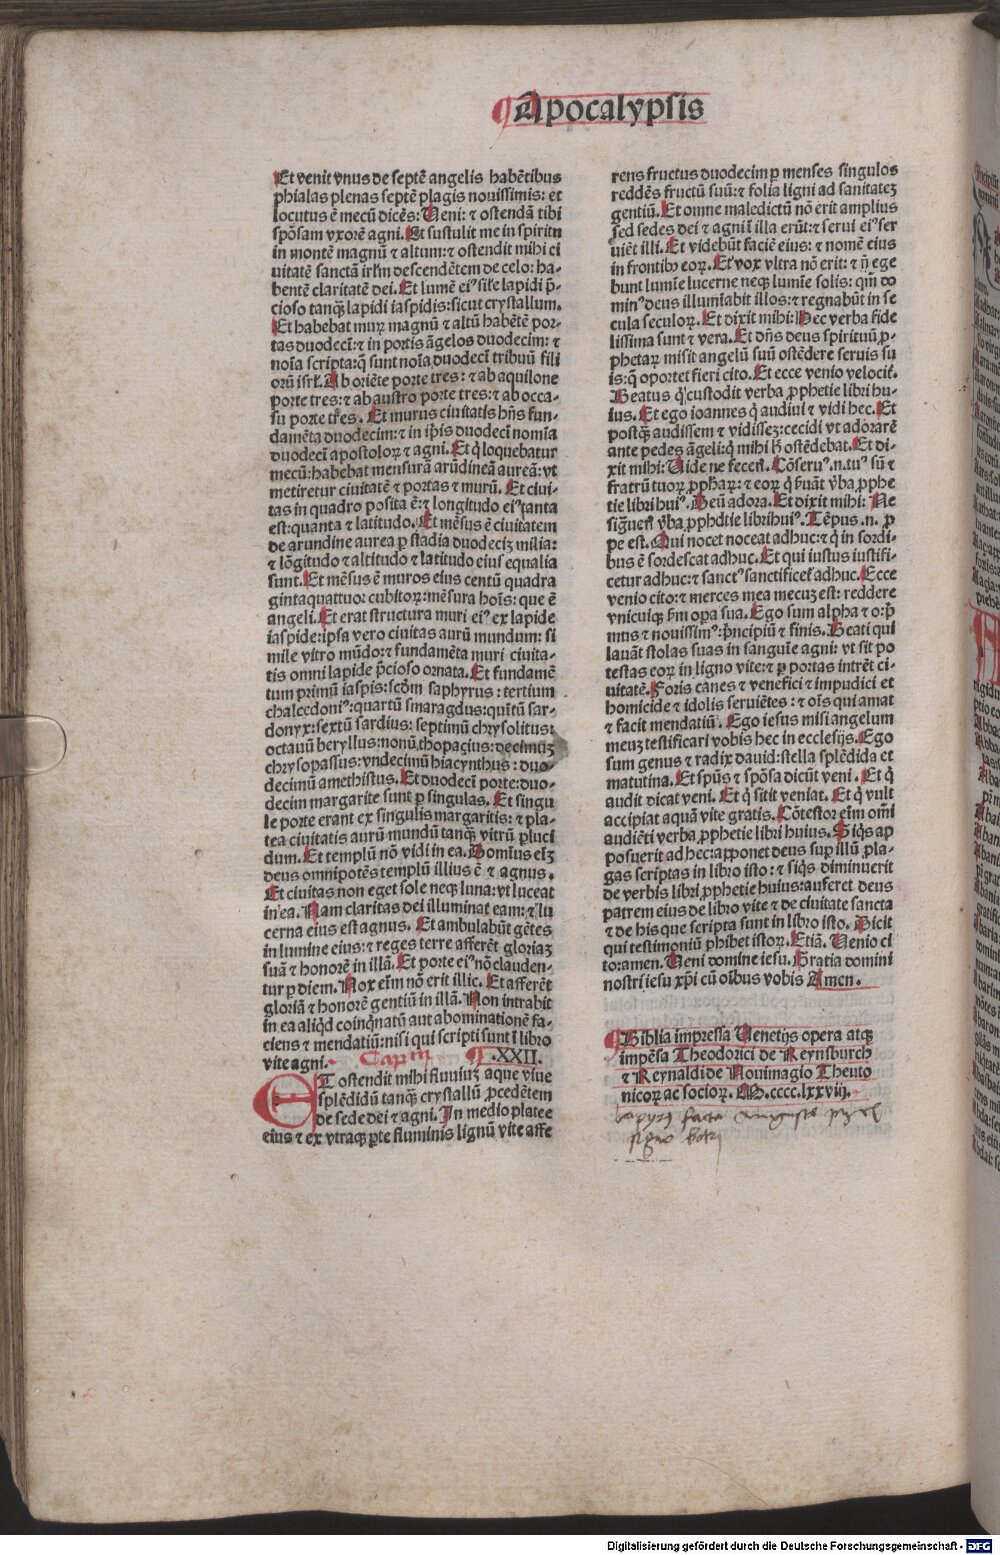 Apocalypsis
Et venit vnus de septē angelis habētibus
phialas plenas septē plagis nouissimis: et
locutus ē mecū dicēs: Ueni: ⁊ ostendā tibi
spōsam vxorē agni. Et sustulit me in spiritu
in montē magnū ⁊ altum: ⁊ ostendit mihi ci
uitatē sanctā irl̄m descendētem de celo: ha-
bentē claritatē dei. Et lumē eiꝰ sil̄e lapidi p̄-
cioso tanqꝫ lapidi iaspidis: sicut crystallum.
Et habebat murꝫ magnū ⁊ altū habētē por-
tas duodeci: ⁊ in portis āgelos duodecim: ⁊
noīa scripta: q̄ sunt noīa duodecī tribuū fili
orū isrl̄. Ab oriēte porte tres: ⁊ ab aquilone
porte tres: ⁊ ab austro porte tres: ⁊ ab occa-
su porte tres. Et murus ciuitatis hn̄s fun-
damēta duodecim: ⁊ in ip̄is duodecī nomīa
duodecī apostoloꝝ ⁊ agni. Et q̄ loquebatur
mecū: habebat mensurā arūdineā aureā: vt
metiretur ciuitatē ⁊ portas ⁊ murū. Et ciui-
tas in quadro posita ē: ⁊ longitudo eiꝰ tanta
est: quanta ⁊ latitudo. Et mēsus ē ciuitatem
de arundine aurea ꝑ stadia duodeciꝫ milia:
⁊ lōgitudo ⁊ altitudo ⁊ latitudo eius equalia
sunt. Et mēsus ē muros eius centū quadra
gintaquattuor cubitoꝝ: mēsura hoīs: que ē
angeli. Et erat structura muri eiꝰ ex lapide
iaspide: ipsa vero ciuitas aurū mundum: si
mile vitro mūdo: ⁊ fundamēta muri ciuita-
tis omni lapide p̄cioso ornata. Et fundamē
tum primū iaspis: scd̄m saphyrus: tertium
chalcedoniꝰ: quartū smaragdus: quītū sar-
donyx: sextū sardius: septimū chrysolitus:
octauū beryllus: nonū thopacius: decimūꝫ
chrysopassus: vndecimū hiacynthus: duo-
decimū amethistus. Et duodecī porte: duo-
decim margarite sunt ꝑ singulas. Et singu
le porte erant ex singulis margaritis: ⁊ pla-
tea ciuitatis aurū mundū tanqꝫ vitrū ꝑluci
dum. Et templū nō vidi in ea. Domīus eīꝫ
deus omnipotēs templū illius ē ⁊ agnus.
Et ciuitas non eget sole neqꝫ luna: vt luceat
in ea. Nam claritas dei illuminat eam: ⁊ lu
cerna eius est agnus. Et ambulabūt gētes
in lumine eius: ⁊ reges terre afferēt gloriaꝫ
suā ⁊ honorē in illā. Et porte eiꝰ nō clauden-
tur ꝑ diem. Nox eīm nō erit illic. Et afferēt
gloriā ⁊ honorē gentiū in illā. Non intrabit
in ea aliqd̄ coinq̄natū aut abominationē fa-
ciens ⁊ mendatiū: nisi qui scripti sunt ī libro
vite agni. Capm .XXII.
ET ostendit mihi fluuiuꝫ aque viue
splēdidū tanqꝫ crystallū ꝓcedētem
de sede dei ⁊ agni. In medio platee
eius ⁊ ex vtraqꝫ ꝑte fluminis lignū vite affe
rens fructus duodecim ꝑ menses singulos
reddēs fructū suū: ⁊ folia ligni ad sanitateꝫ
gentiū. Et omne maledictū nō erit amplius
sed sedes dei ⁊ agni ī illa erūt: ⁊ serui eiꝰ ser
uiēt illi. Et videbūt faciē eius: ⁊ nomē eius
in frontibꝰ eoꝝ. Et vox vltra nō erit: ⁊ nō ege
bunt lumīe lucerne neqꝫ lumīe solis: qm̄ do
minꝰ deus illumīabit illos: ⁊ regnabūt in se
cula seculoꝝ. Et dixit mihi: Hec verba fide
lissima sunt ⁊ vera. Et dn̄s deus spirituū ꝓ-
phetaꝝ misit angelū suū ostēdere seruis su
is: q̄ oportet fieri cito. Et ecce venio velocit̄.
Beatus q̄ custodit verba ꝓphetie libri hu-
ius. Et ego ioannes q̄ audiui ⁊ vidi hec. Et
postqꝫ audissem ⁊ vidisseꝫ: cecidi vt adorarē
ante pedes āgeli: q̄ mihi h̄ ostēdebat. Et di-
xit mihi: Uide ne feceris. Cōseruꝰ .n. tuꝰ sū ⁊
fratrū tuoꝝ ꝓph̄aꝝ: ⁊ eoꝝ q̄ s̄uāt v̄ba ꝓphe
tie libri huiꝰ. Deū adora. Et dixit mihi: Ne
sigueris v̄ba ꝓphetie libri huiꝰ. Tēpus .n. ꝓ
pe est. Qui nocet noceat adhuc: ⁊ q̄ in sordi-
bus ē sordescat adhuc. Et qui iustus iustifi-
cetur adhuc: ⁊ sanctꝰ sanctificet̄ adhuc. Ecce
venio cito: ⁊ merces mea mecuꝫ est: reddere
vnicuiqꝫ s̄m oꝑa sua. Ego sum alpha ⁊ o: p̄
mus ⁊ nouissimꝰ: p̄ncipiū ⁊ finis. Beati qui
lauāt stolas suas in sanguīe agni: vt sit po
testas eoꝝ in ligno vite: ⁊ ꝑ portas intrēt ci-
uitatē. Foris canes ⁊ venefici ⁊ impudici et
homicide ⁊ idolis seruiētes: ⁊ oīs qui amat
⁊ facit mendatiū. Ego iesus misi angelum
meuꝫ testificari vobis hec in ecclesijs. Ego
sum genus ⁊ radix dauid: stella splēdida et
matutina. Et spūs ⁊ spōsa dicūt veni. Et q̄
audit dicat veni. Et q̄ sitit veniat. Et q̄ vult
accipiat aquā vite gratis. Cōtestor eīm om̄i
audiēti verba ꝓphetie libri huius. Siqs̄ ap
posuerit ad hec: apponet deus suꝑ illū ꝓla-
gas scriptas in libro isto: ⁊ siqs̄ diminuerit
de verbis libri ꝓphetie huius: auferet deus
patrem eius de libro vite ⁊ de ciuitate sancta
⁊ de his que scripta sunt in libro isto. Dicit
qui testimoniū ꝑhibet istoꝝ. Etiā. Uenio ci
to: amen. Ueni domine iesu. Gratia domini
nostri iesu xp̄i cū oībus vobis Amen.
Biblia impressa Uenetijs opera atqꝫ
impēsa Theodorici de Reynsburch
⁊ Reynaldi de Nouimagio Theuto
nicoꝝ ac socioꝝ. M.cccc.lxxviij.
papyrꝰ facta
signo botri
Digitalisierung gefördert durch die Deutsche Forschungsgemeinschaft - DFG